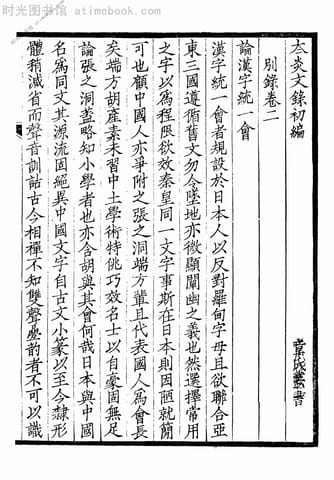 时光图书馆 atimebook.com
太炎文錄初編
別錄卷二
章氏叢書
論漢字統一會
漢字統一會者規設於日本人以反對羅甸字母且欲聯合亞
東三國遵循舊文勿令墜地亦微顯闡幽之義也然選擇常用
之字以爲程限欲效秦皇同一文字事斯在日本則因陋就簡
可也顧中國人亦爭附之張之洞端方輩且代表國人爲會長
矣端方胡產素未習中土學術特佻巧效名士以自豪固無足
論張之洞盡略知小學者也亦含胡與其會何哉日本與中國
名爲同文其源流固絕異中國文字自古文小篆以至今隸形
體稍減省而聲音訓詁古今相禪不知雙聲曡韵者不可以識